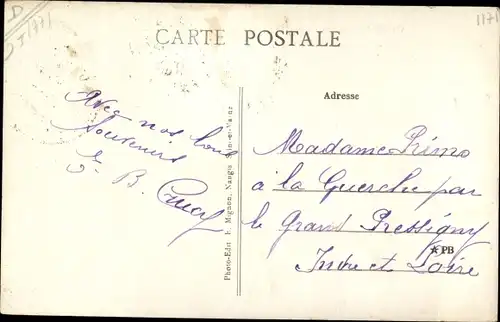 D
J 1171
1171
CARTE POSTALE
Adresse
Avec nos bons
Souvenirs
B.
Photo-Edit. E. Mignon, Nangis (Sin-et-Marne)
Madame Primo
à la Guerche par
le Grand Pressigny
★PB
Indre et Loire